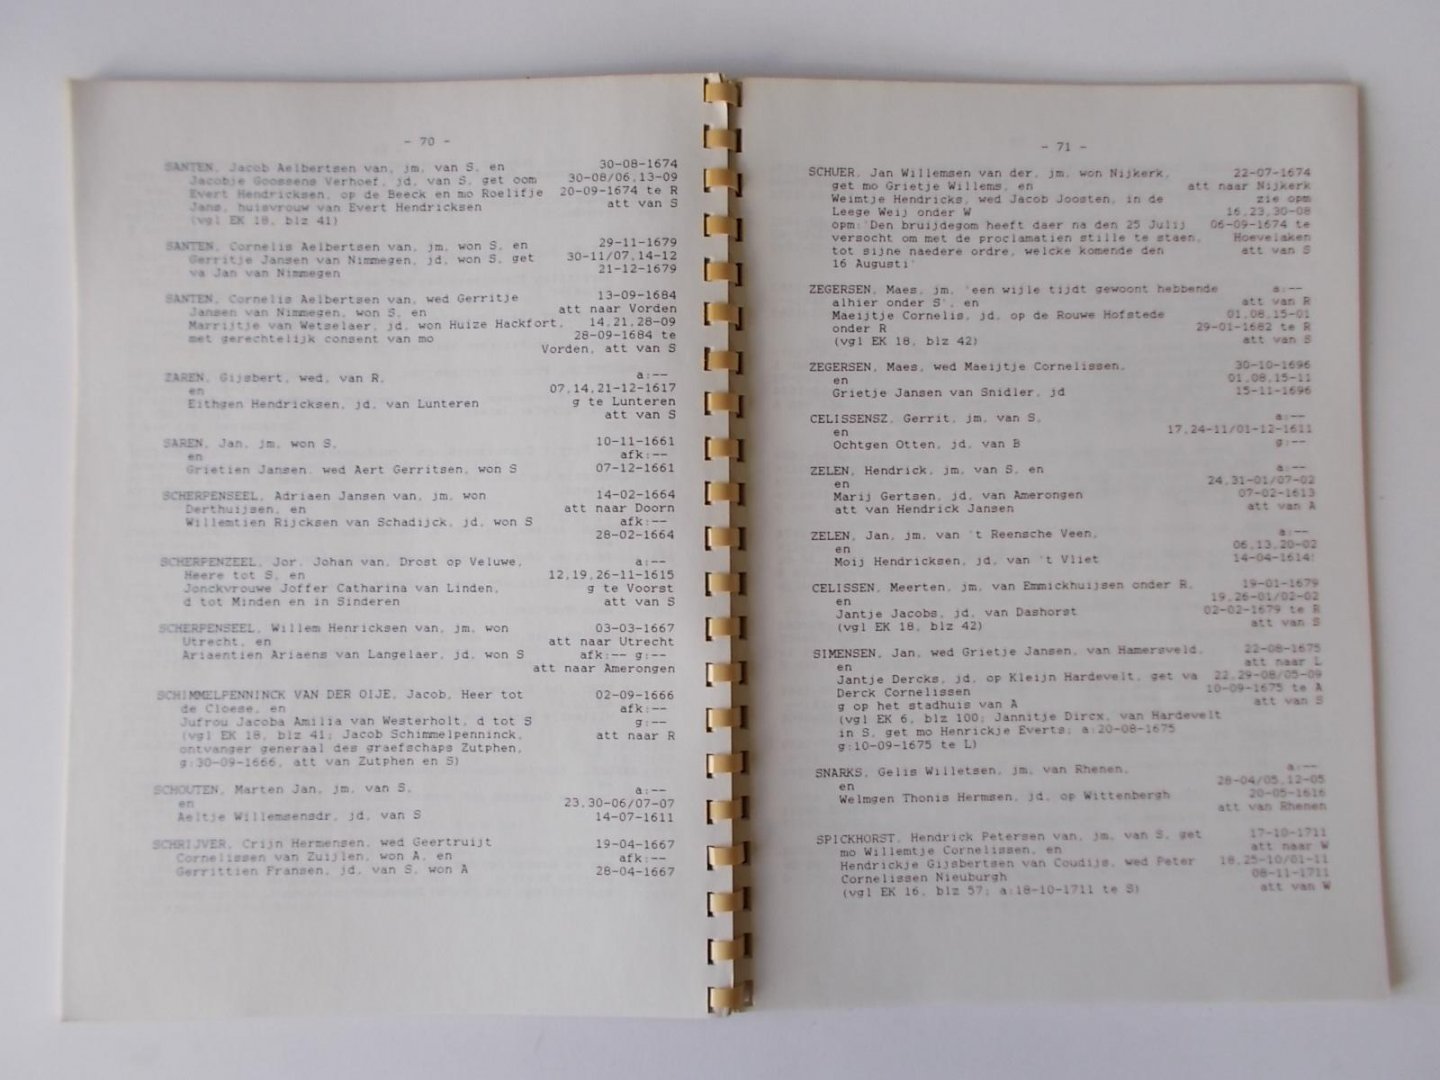 - 70 -
SANTEN, Jacob Aelbertsen van, jm. van S, en 30-08-1674
Jacobje Goossens Verhoef, jd. van S, get oom 30-08/06,13-09
Evert Hendricksen, op de Beeck en mo Roelifje 20-09-1674 te R
Jans, huisvrouw van Evert Hendricksen att van S
(vgl EK 18, blz 41)
SANTEN, Cornelis Aelbertsen van, jm. won S, en 29-11-1679
Gerritje Jansen van Nimmegen, jd. won S, get 30-11/07,14-12
va Jan van Nimmegen 21-12-1679
SANTEN, Cornelis Aelbertsen van, wed Gerritje 13-09-1684
Jansen van Nimmegen, won S, en att naar Vorden
Marrijtje van Wetselaer, jd. won Huize Hackfort, 14,21,28-09
met gerechtelijk consent van mo 28-09-1684 te
Vorden, att van S
ZAREN, Gijsbert, wed, van R, a:--
en 07,14,21-12-1617
Eithgen Hendricksen, jd. van Lunteren g te Lunteren
att van S
SAREN, Jan, jm, won S, 10-11-1661
en afk:--
Grietien Jansen, wed Aert Gerritsen, won S 07-12-1661
SCHERPENSEEL, Adriaen Jansen van, jm, won 14-02-1664
Derthuijsen, en att naar Doorn
Willemtien Rijcksen van Schadijck, jd, won S afk:--
28-02-1664
SCHERPENZEEL, Jor, Johan van, Drost op Veluwe, a:--
Heere tot S, en 12,19,26-11-1615
Jonckvrouwe Joffer Catharina van Linden, g te Voorst
d tot Minden en in Sinderen att van S
SCHERPENSEEL, Willem Henricksen van, jm, won 03-03-1667
Utrecht, en att naar Utrecht
Ariaentien Ariaens van Langelaer, jd, won S afk:-- g:--
att naar Amerongen
SCHIMMELPENNINCK VAN DER OIJE, Jacob, Heer tot 02-09-1666
de Cloese, en afk:--
Jufrou Jacoba Amilia van Westerholt, d tot S g:--
(vgl EK 18, blz 41; Jacob Schimmelpenninck, att naar R
ontvanger generaal des graefschaps Zutphen,
g:30-09-1666, att van Zutphen en S)
SCHOUTEN, Marten Jan, jm, van S, a:--
en 23,30-06/07-07
Aeltje Willemsensdr, jd, van S 14-07-1611
SCHRIJVER, Crijn Hermensen, wed Geertruijt 19-04-1667
Cornelissen van Zuijlen, won A, en afk:--
Gerrittien Fransen, jd, van S, won A 28-04-1667
- 71 -
SCHUER, Jan Willemsen van der, jm, won Nijkerk, 22-07-1674
get mo Grietje Willems, en att naar Nijkerk
Weimtje Hendricks, wed Jacob Joosten, in de zie opm
Leege Weij onder W 16,23,30-08
opm:'Den bruijdegom heeft daer na den 25 Julij 06-09-1674 te
versocht om met de proclamatien stille te staen, Hoevelaken
tot sijne naedere ordre, welcke komende den att van S
16 Augusti'
ZEGERSEN, Maes, jm, 'een wijle tijdt gewoont hebbende a:--
alhier onder S', en att van R
Maeijtje Cornelis, jd, op de Rouwe Hofstede 01,08,15-01
onder R 29-01-1682 te R
(vgl EK 18, blz 42) att van S
ZEGERSEN, Maes, wed Maeijtje Cornelissen, 30-10-1696
en 01,08,15-11
Grietje Jansen van Snidler, jd 15-11-1696
CELISSENSZ, Gerrit, jm, van S, a:--
en 17,24-11/01-12-1611
Ochtgen Otten, jd, van B g:--
ZELEN, Hendrick, jm, van S, en a:--
en 24,31-01/07-02
Marij Gertsen, jd, van Amerongen 07-02-1613
att van Hendrick Jansen att van A
ZELEN, Jan, jm, van 't Reensche Veen, a:--
en 06,13,20-02
Moij Hendricksen, jd, van 't Vliet 14-04-1614!
CELISSEN, Meerten, jm, van Emmickhuijsen onder R, 19-01-1679
en 19,26-01/02-02
Jantje Jacobs, jd, van Dashorst 02-02-1679 te R
(vgl EK 18, blz 42) att van S
SIMENSEN, Jan, wed Grietje Jansen, van Hamersveld, 22-08-1675
en att naar L
Jantje Dercks, jd, op Kleijn Hardevelt, get va 22,29-08/05-09
Derck Cornelissen 10-09-1675 te A
g op het stadhuis van A att van S
(vgl EK 6, blz 100; Jannitje Dircx, van Hardevelt
in S, get mo Henrickje Everts; a:20-08-1675
g:10-09-1675 te L)
SNARKS, Gelis Willetsen, jm, van Rhenen, a:--
en 28-04/05,12-05
Welmgen Thonis Hermsen, jd, op Wittenbergh 20-05-1616
att van Rhenen
SPICKHORST, Hendrick Petersen van, jm, van S, get 17-10-1711
mo Willemtje Cornelissen, en att naar W
Hendrickje Gijsbertsen van Coudijs, wed Peter 18,25-10/01-11
Cornelissen Nieuburgh 08-11-1711
(vgl EK 16, blz 57; a:18-10-1711 te S) att van W